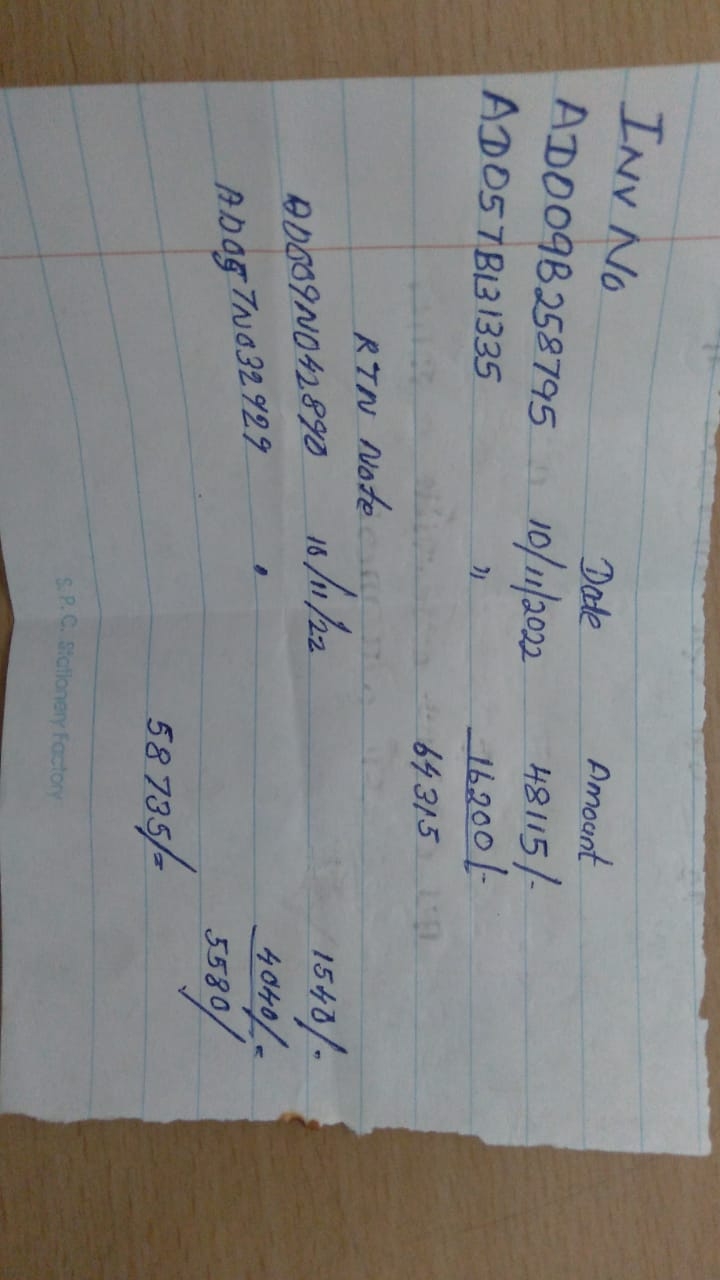 INV No Date Amount
AD009B258795 10/11/2022 48115/-
AD057B131335 " 16200/-
64315
RTN Note
AD009N042890 10/11/22 1540/-
AD057N032929 " 4040/=
5580/
58735/=
S.P.C. Stationery Factory